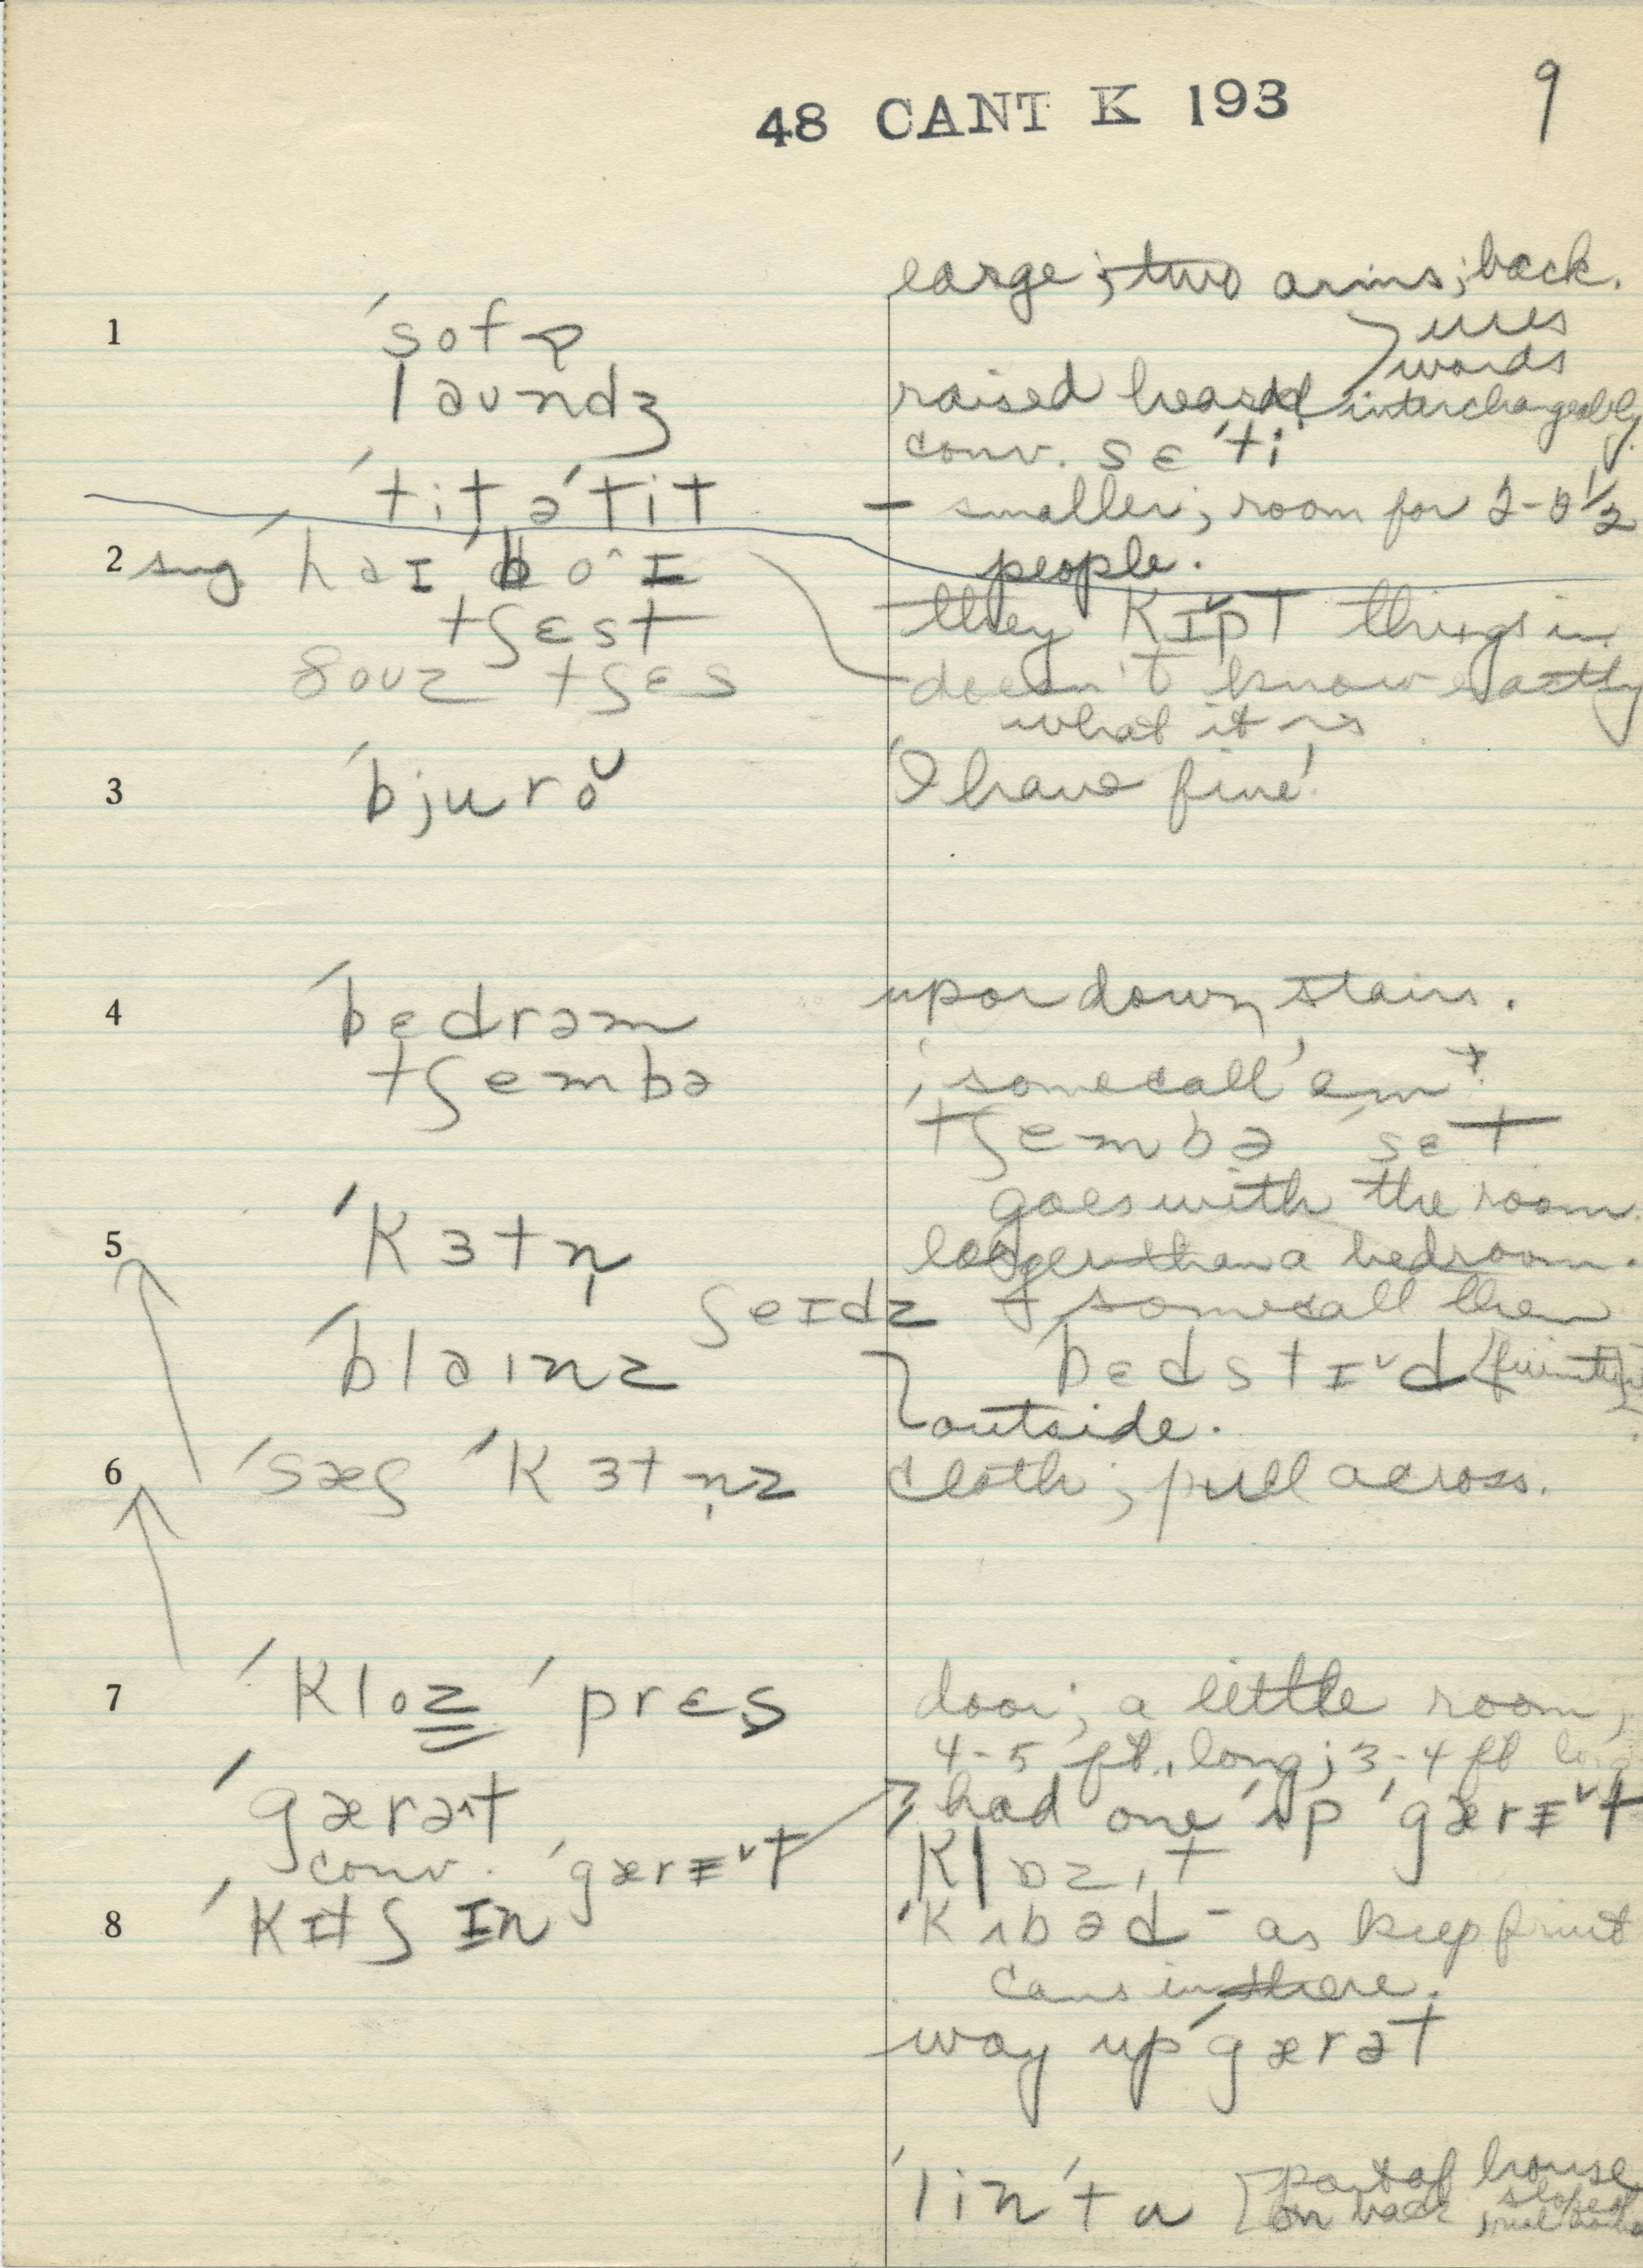 48 CANT K 193 9
large; two arms; back.
1 ˈsofɒ
uses
words
laundʒ raised head interchangeably
conv. sɛˈti
ˈtit əˈtit – smaller; room for 2-2½
people.
2 sug. ˈhaɪ ˈbo^ɪ
they kɪ˅pt things in
tʃɛst
ðouz tʃɛs doesn't know exactly
what it is
3 ˈbjuro˅ 'I have five'
4 ˈbɛdrəm up or down stairs.
tʃembə ; some call 'em
tʃembə ˈsɛt
goes with the room
5 ˈkɜtn̩ larger than a bedroom.
ʃeɪdz some call them
ˈblaɪnz ˈbɛdstɪ˅d
outside.
6 ˈsæʃ ˈkɜtn̩z cloth; pull across.
7 ˈkloz ˈprɛs door; a little room;
4-5 ft. long; 3-4 ft
ˈgærət had one ʌp ˈgærɪ˅t
conv. ˈgærɪ˅t klɒzɪt
8 ˈkɪtʃɪn ˈkʌbəd – as keep fruit
cans in there.
way up ˈgærət
ˈlinˈtu part of house
on back, slopes